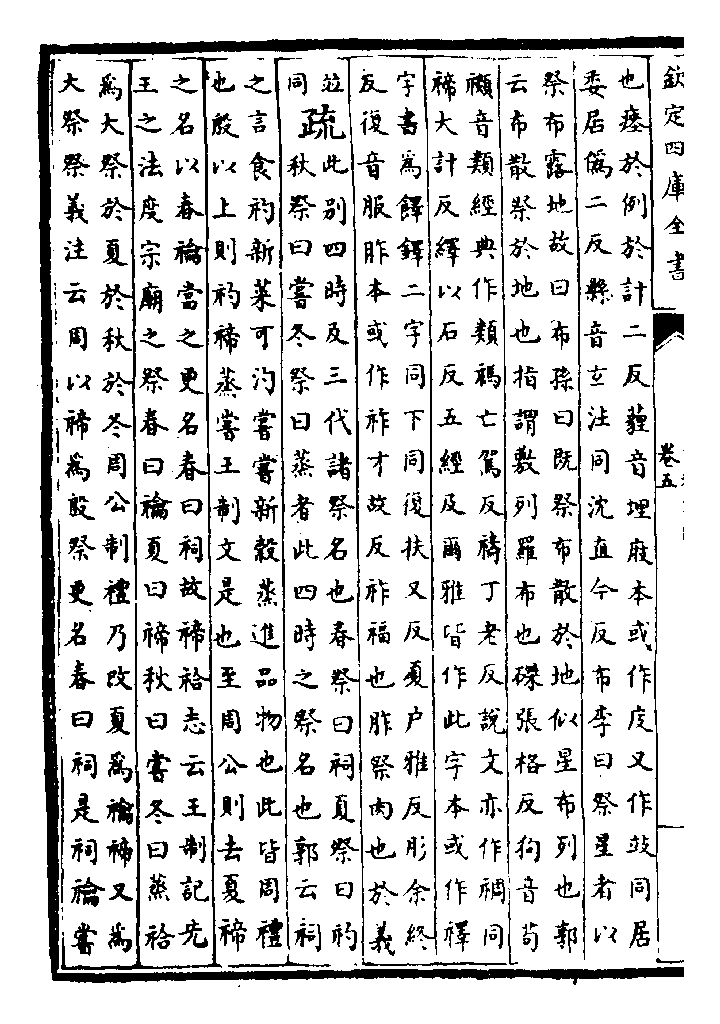 欽定四庫全書
卷五
也瘞於例於計二反薶音埋庪本或作庋又作攱同居
委居偽二反縣音玄注同沈直今反布李曰祭星者以
祭布露地故曰布孫曰既祭布散於地似星布列也郭
云布散祭於地也指謂敷列羅布也磔張格反狗音苟
禷音類經典作類禡亡駕反禱丁老反說文亦作禂同
禘大計反繹以石反五經及爾雅皆作此字本或作𥜃
字書為䭞鐸二字同下同復扶又反夏户雅反肜余終
反復音服胙本或作祚才故反祚福也胙祭肉也於義
竝同
疏
此別四時及三代諸祭名也春祭曰祠夏祭曰礿
秋祭曰嘗冬祭曰蒸者此四時之祭名也郭云祠
之言食礿新菜可汋嘗嘗新穀蒸進品物也此皆周禮
也殷以上則礿禘蒸嘗王制文是也至周公則去夏禘
之名以春禴當之更名春曰祠故禘祫志云王制記先
王之法度宗廟之祭春曰禴夏曰禘秋曰嘗冬曰蒸祫
為大祭於夏於秋於冬周公制禮乃改夏為禴禘又為
大祭祭義注云周以禘為殷祭更名春曰祠是祠禴嘗